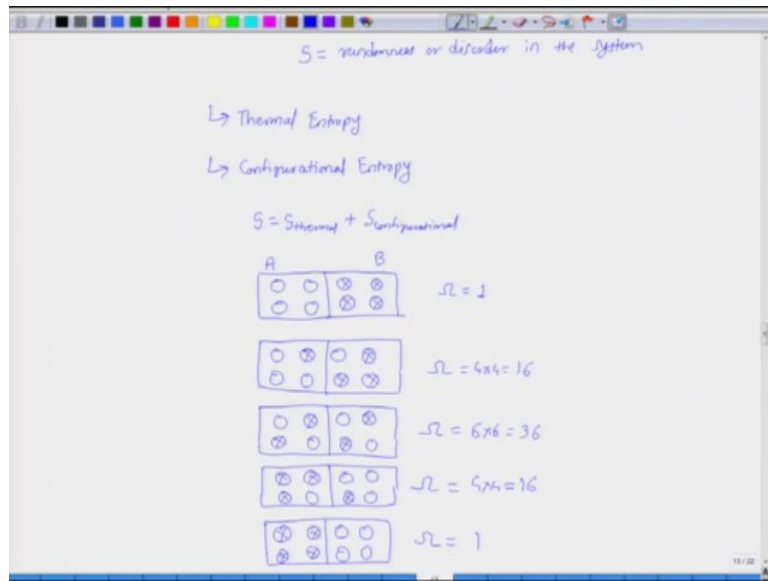 S = randomness or disorder in the system
↳ Thermal Entropy
↳ Configurational Entropy
S = Sthermal + Sconfigurational
A B
Ω = 1
Ω = 4x4 = 16
Ω = 6x6 = 36
Ω = 4x4 = 16
Ω = 1
13 / 22